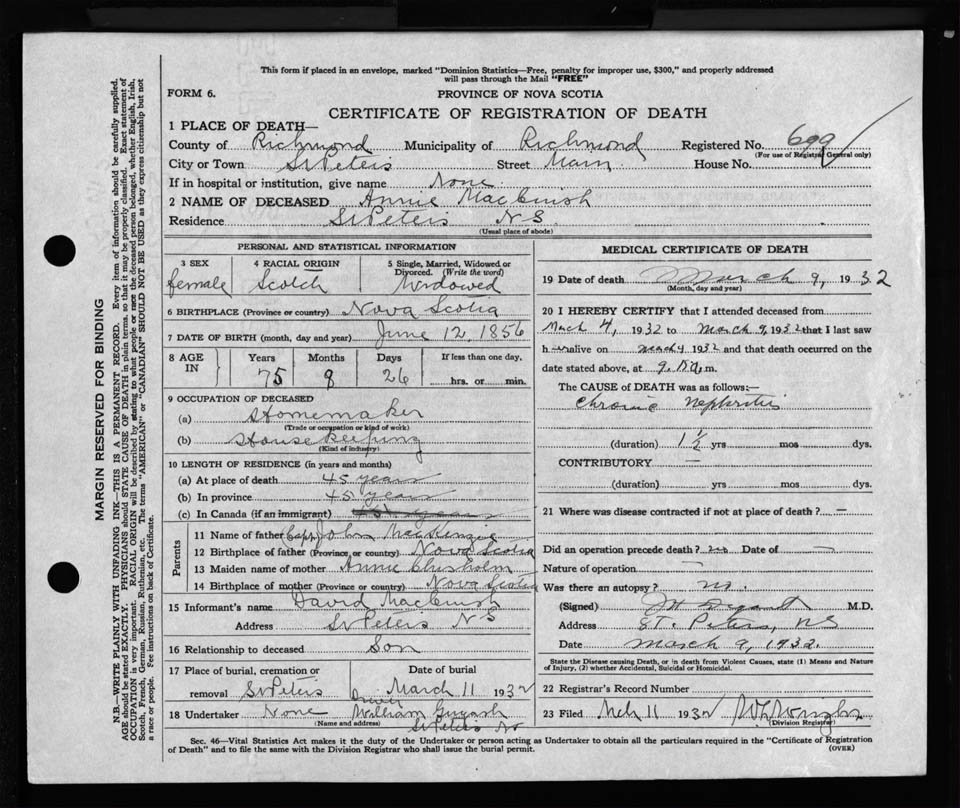 This form if placed in an envelope, marked "Dominion Statistics—Free, penalty for improper use, $300," and properly addressed
will pass through the Mail "FREE"
FORM 6.
PROVINCE OF NOVA SCOTIA
CERTIFICATE OF REGISTRATION OF DEATH
1 PLACE OF DEATH—
County of Richmond Municipality of Richmond Registered No. 699
(For use of Registrar General only)
City or Town St Peters Street Main House No.
If in hospital or institution, give name None
2 NAME OF DECEASED Annie MacCuish
Residence St Peters N S
(Usual place of abode)
PERSONAL AND STATISTICAL INFORMATION
3 SEX 4 RACIAL ORIGIN 5 Single, Married, Widowed or
Divorced. (Write the word)
female Scotch Widowed
6 BIRTHPLACE (Province or country) Nova Scotia
7 DATE OF BIRTH (month, day and year) June 12, 1856
8 AGE IN Years Months Days If less than one day,
75 8 26 hrs. or min.
9 OCCUPATION OF DECEASED
(a) Homemaker
(Trade or occupation or kind of work)
(b) Housekeeping
(Kind of industry)
10 LENGTH OF RESIDENCE (in years and months)
(a) At place of death 45 years
(b) In province 45 years
(c) In Canada (if an immigrant)
Parents
11 Name of father (Capt) John MacKenzie
12 Birthplace of father (Province or country) Nova Scotia
13 Maiden name of mother Annie Chisholm
14 Birthplace of mother (Province or country) Nova Scotia
15 Informant's name David MacCuish
Address St Peters N S
16 Relationship to deceased Son
17 Place of burial, cremation or Date of burial
removal St Peters March 11 1932
18 Undertaker None William
(Name and address) St Peters NS
MEDICAL CERTIFICATE OF DEATH
19 Date of death March 9, 1932
(Month, day and year)
20 I HEREBY CERTIFY that I attended deceased from
March 4, 1932 to March 9, 1932 that I last saw
h alive on March 1932 and that death occurred on the
date stated above, at 9 m.
The CAUSE OF DEATH was as follows:—
Chronic Nephritis
(duration) 1½ yrs mos dys.
CONTRIBUTORY —
(duration) yrs mos dys.
21 Where was disease contracted if not at place of death? —
Did an operation precede death? no Date of —
Nature of operation —
Was there an autopsy? no.
(Signed) M.D.
Address St. Peters, NS
Date March 9, 1932.
State the Disease causing Death, or in death from Violent Causes, state (1) Means and Nature
of Injury, (2) whether Accidental, Suicidal or Homicidal.
22 Registrar's Record Number
23 Filed Mch 11 1932
(Division Registrar)
Sec. 46—Vital Statistics Act makes it the duty of the Undertaker or person acting as Undertaker to obtain all the particulars required in the "Certificate of Registration
of Death" and to file the same with the Division Registrar who shall issue the burial permit. (OVER)
MARGIN RESERVED FOR BINDING
N.B.—WRITE PLAINLY WITH UNFADING INK—THIS IS A PERMANENT RECORD. Every item of information should be carefully supplied.
AGE should be stated EXACTLY. PHYSICIANS should STATE CAUSE OF DEATH in plain terms, so that it may be properly classified. Exact statement of
OCCUPATION is very important. RACIAL ORIGIN will be described by stating to what people or race the deceased person belonged, whether English, Irish,
Scotch, French, German, Russian, Ruthenian, etc. The terms "AMERICAN" or "CANADIAN" SHOULD NOT BE USED as they express citizenship but not
a race or people. Fee instructions on back of Certificate.